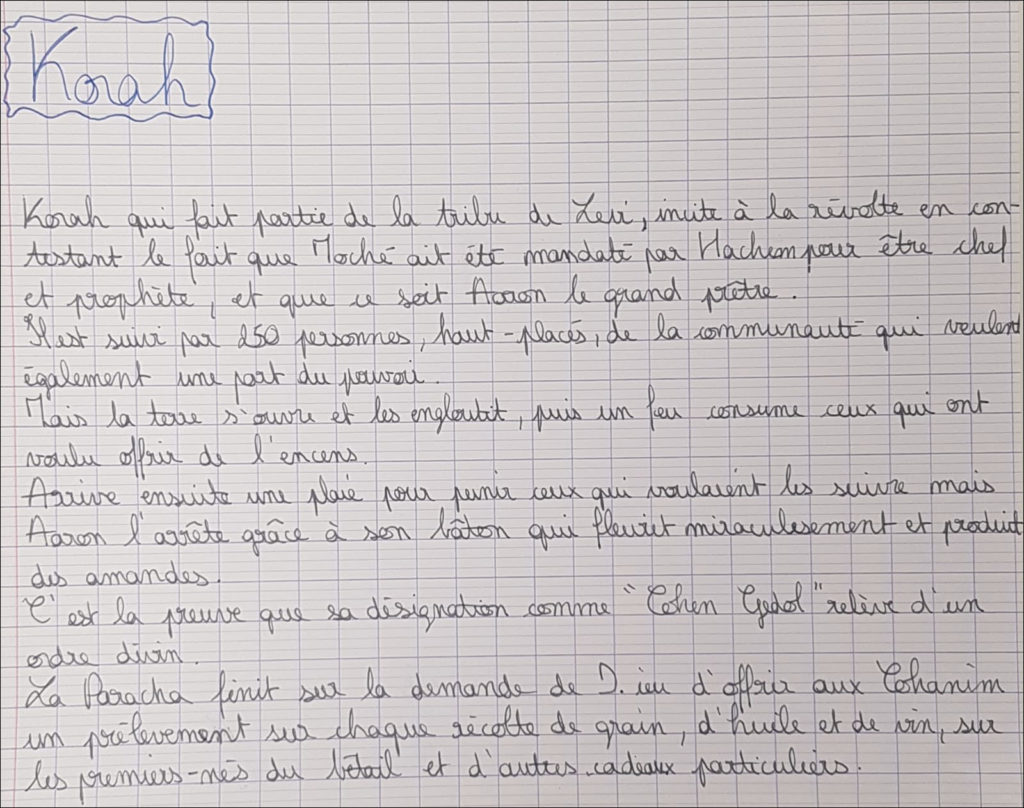 Korah
Korah qui fait partie de la tribu de Levi, incite à la révolte en con-
testant le fait que Moché ait été mandaté par Hachem pour être chef
et prophète, et que ce soit Aaron le grand prêtre.
Il est suivi par 250 personnes, haut-placés, de la communauté qui veulent
également une part du pouvoir.
Mais la terre s'ouvre et les engloutit, puis un feu consume ceux qui ont
voulu offrir de l'encens.
Arrive ensuite une plaie pour punir ceux qui voulaient les suivre mais
Aaron l'arrête grâce à son bâton qui fleurit miraculesement et produit
des amandes.
C'est la preuve que sa désignation comme "Cohen Gadol" relève d'un
ordre divin.
La Paracha finit sur la demande de D.ieu d'offrir aux Cohanim
un prélèvement sur chaque récolte de grain, d'huile et de vin, sur
les premiers-nés du bétail et d'autres cadeaux particuliers.